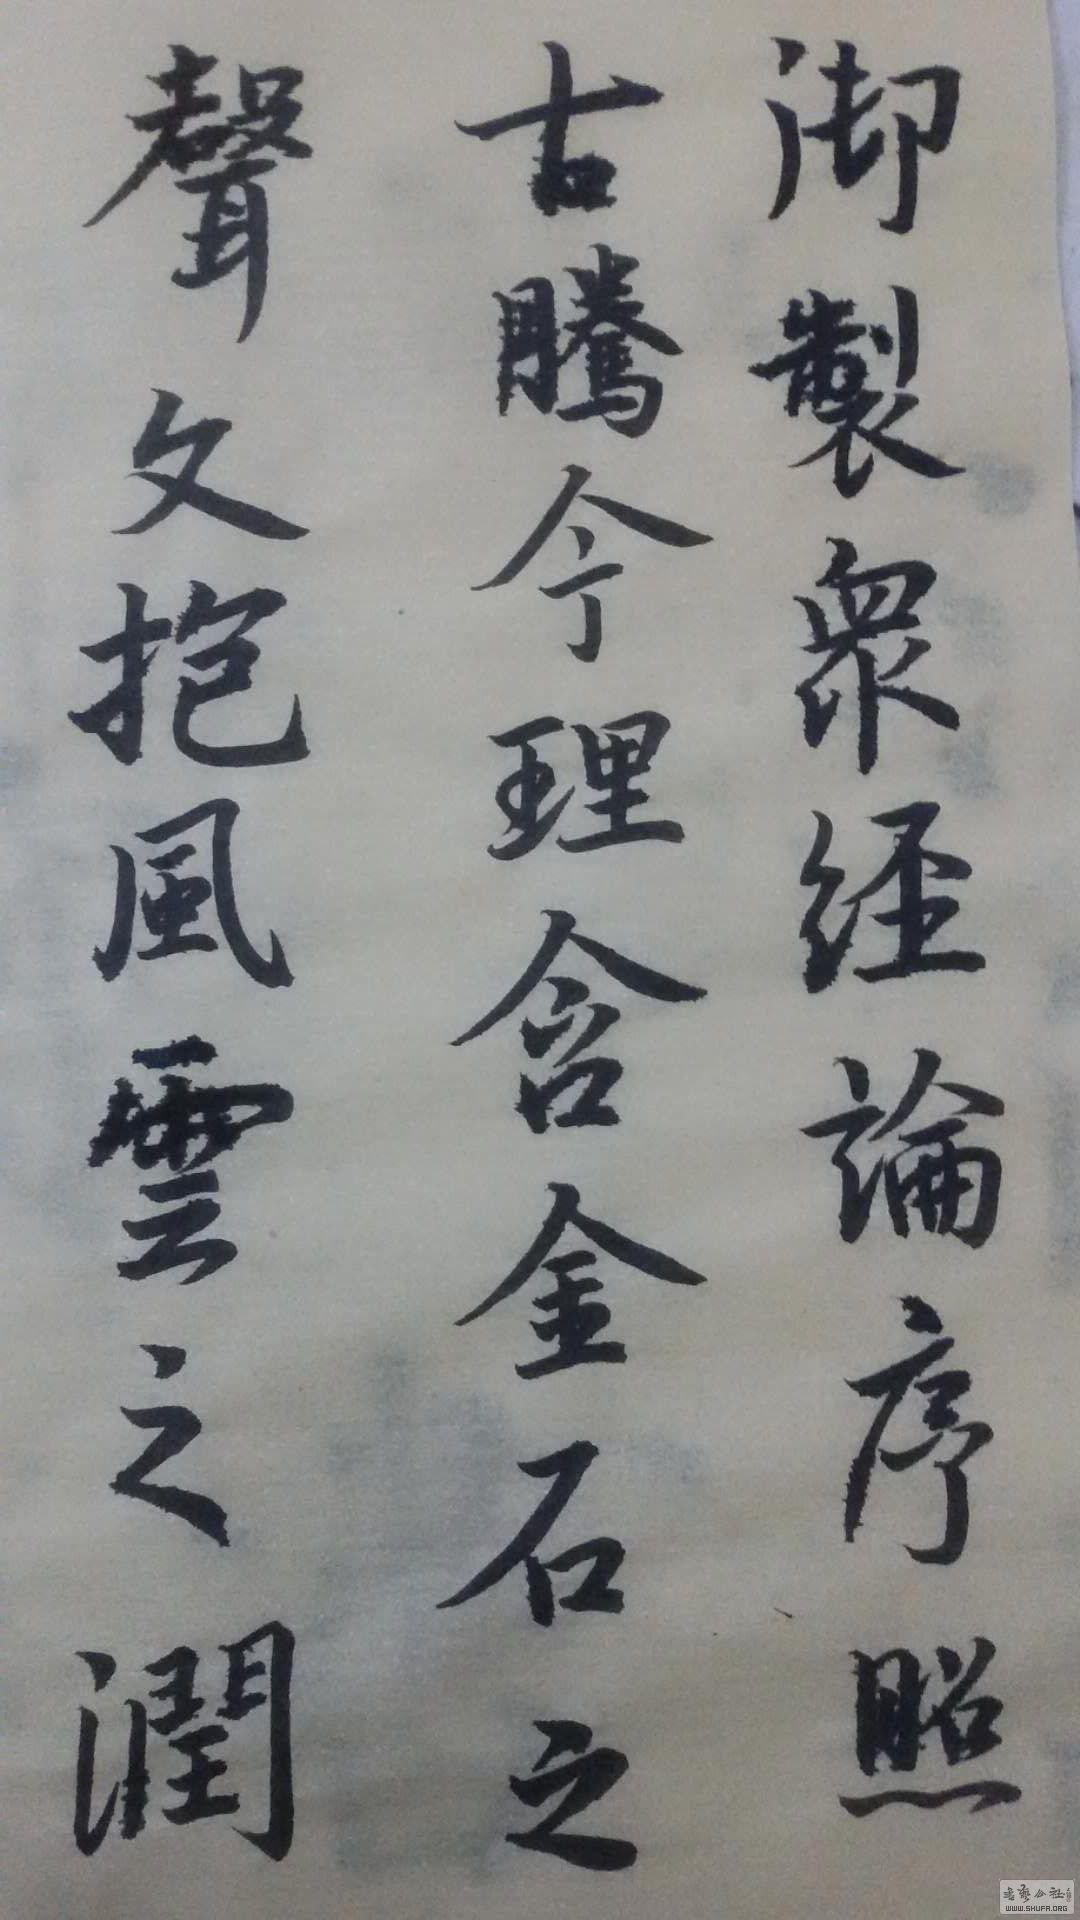 御製眾經論序照
古騰今理含金石之
聲文抱風雲之潤
WWW.SHUFA.ORG